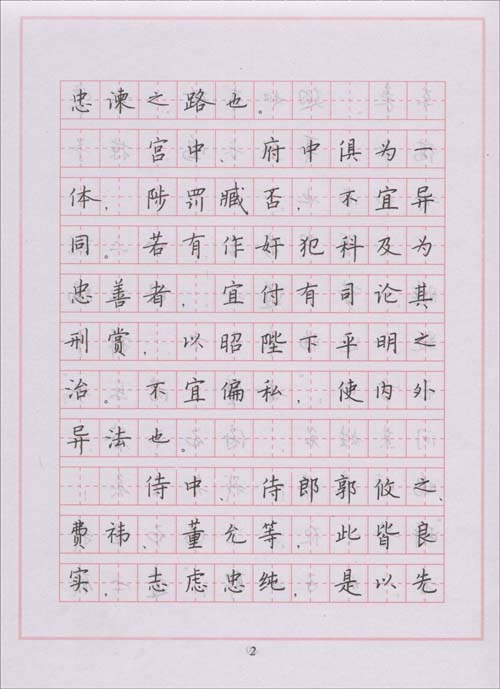 忠谏之路也。
宫中、府中俱为一
体，陟罚臧否，不宜异
同。若有作奸犯科及为
忠善者，宜付有司论其
刑赏，以昭陛下平明之
治。不宜偏私，使内外
异法也。
侍中、侍郎郭攸之、
费祎、董允等，此皆良
实，志虑忠纯，是以先
2